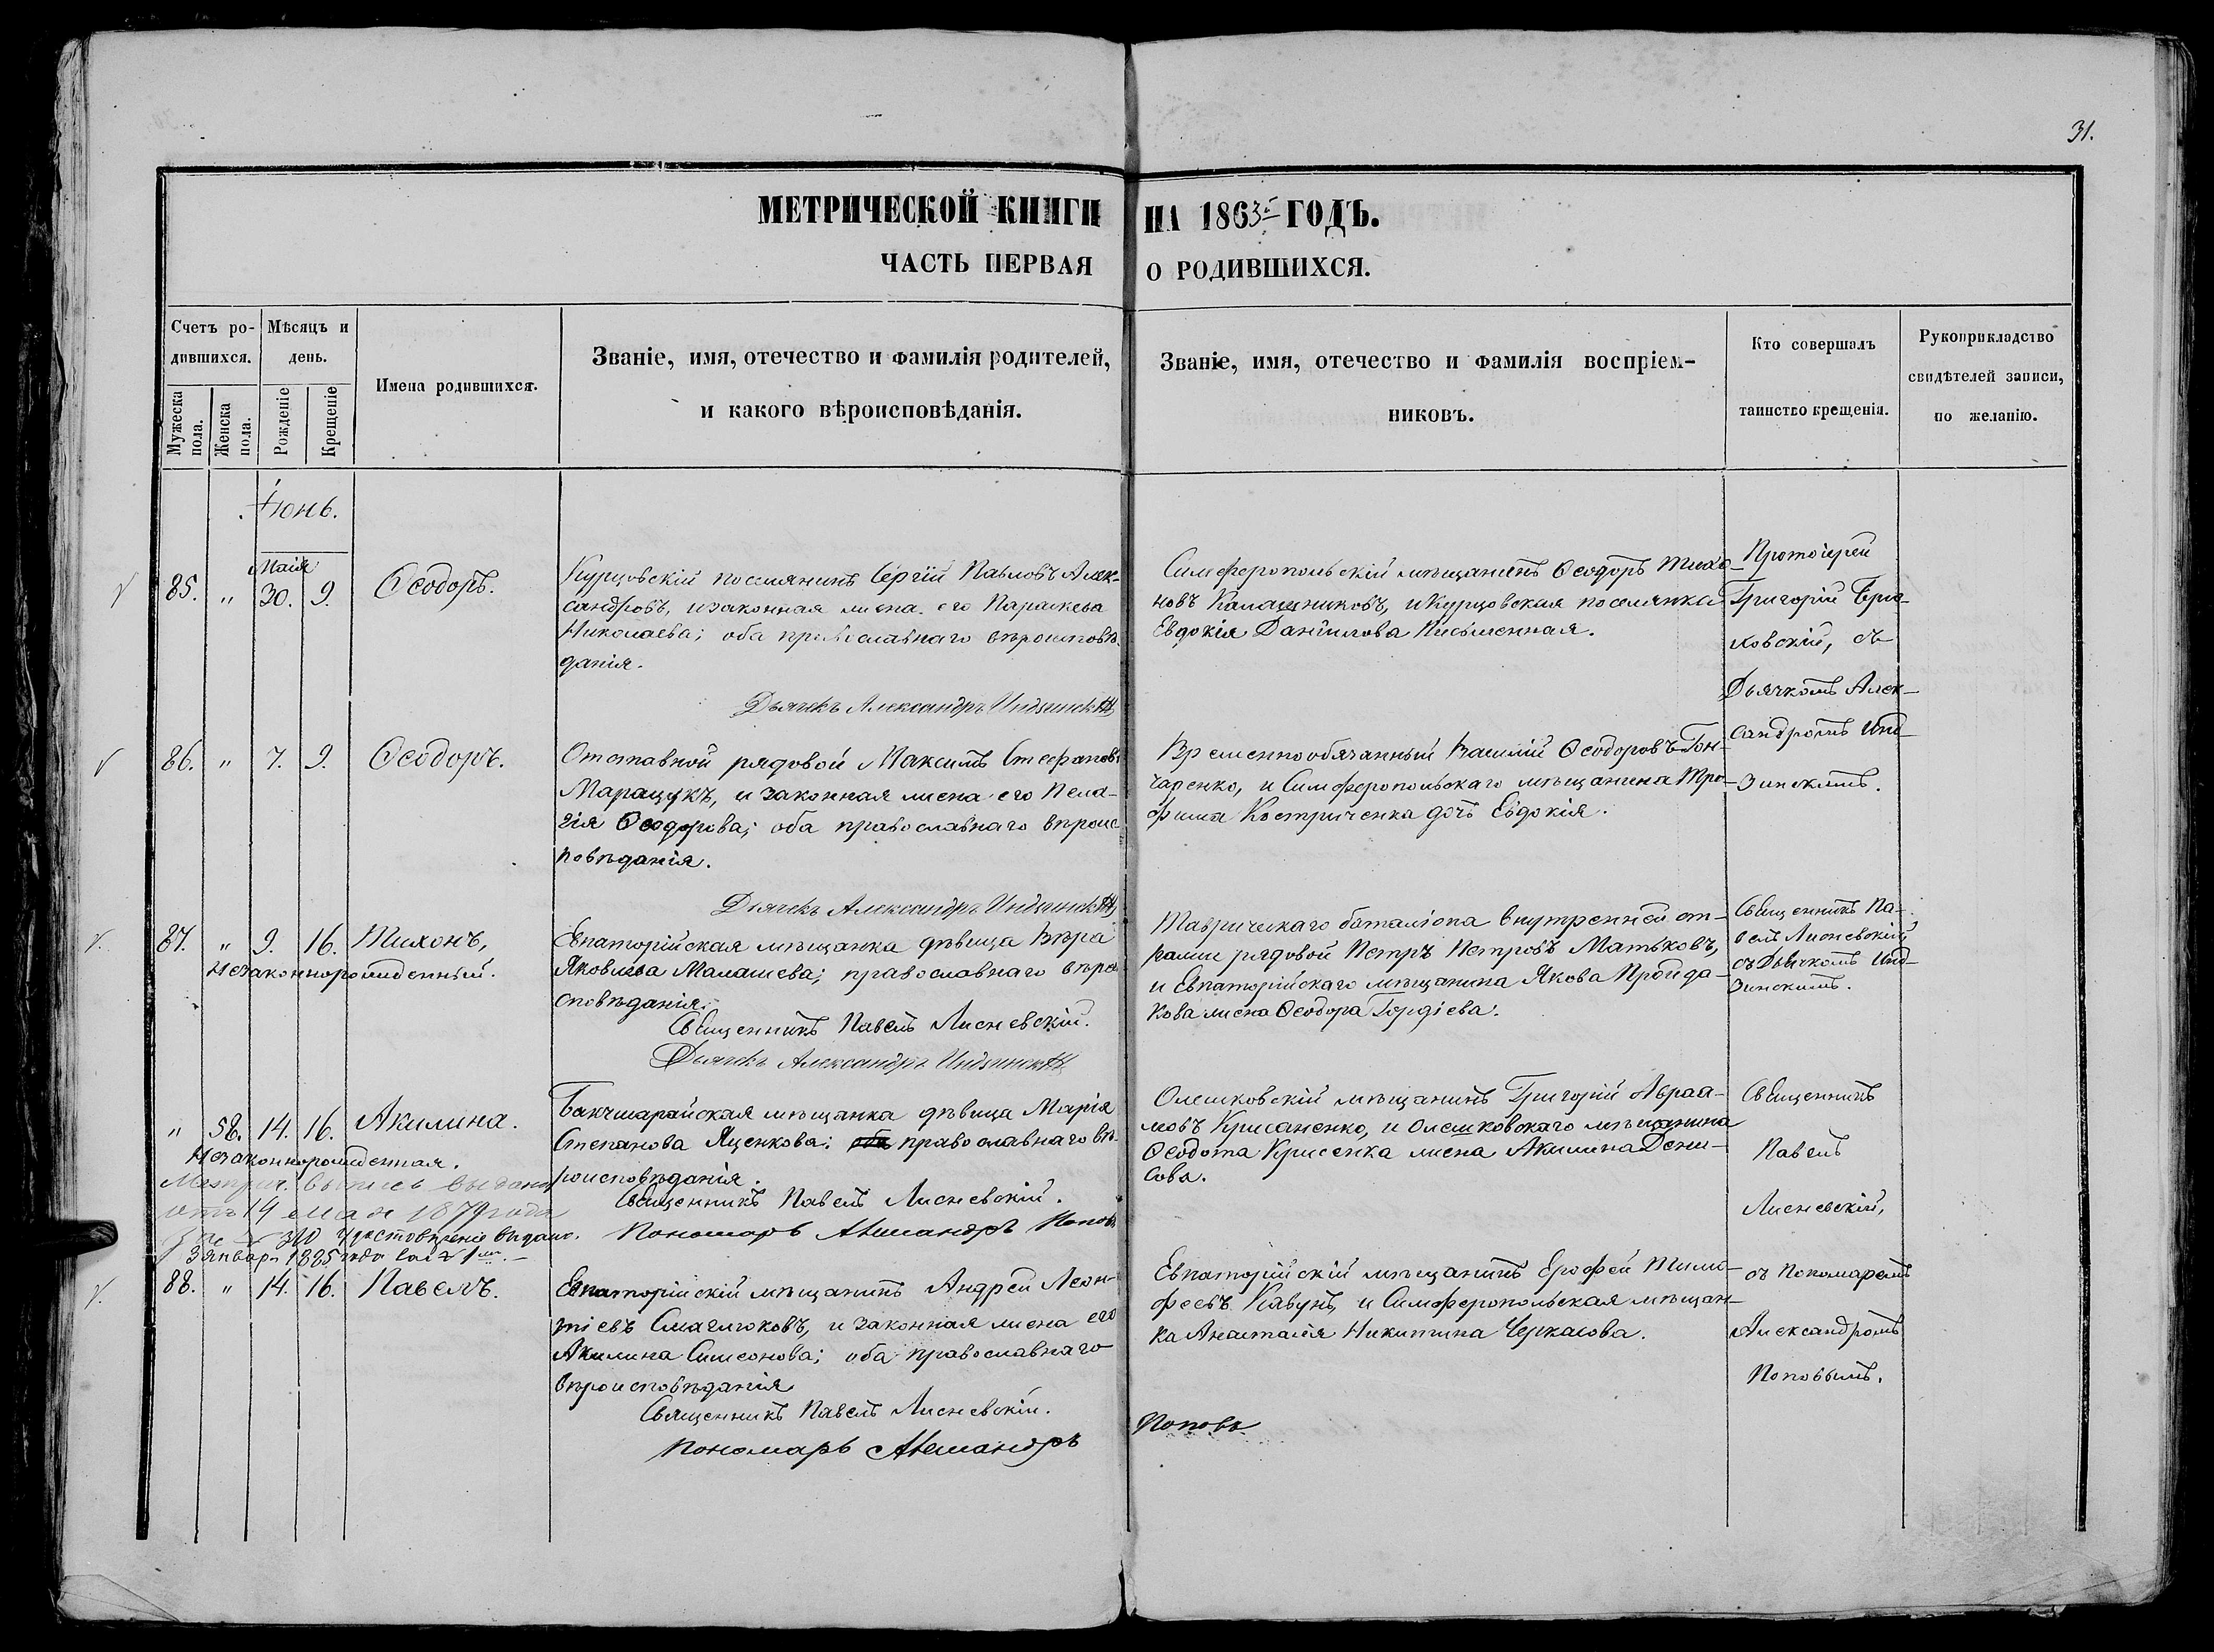 31.
МЕТРИЧЕСКОЙ КНИГИ НА 1863й ГОДЪ.
ЧАСТЬ ПЕРВАЯ О РОДИВШИХСЯ.
Счетъ ро-
дившихся.
Мужеска пола.
Женска пола.
Мѣсяцъ и
день.
Рожденіе
Крещеніе
Имена родившихся.
Званіе, имя, отечество и фамилія родителей,
и какого вѣроисповѣданія.
Званіе, имя, отечество и фамилія воспріем-
никовъ.
Кто совершалъ
таинство крещенія.
Рукоприкладство
свидѣтелей записи,
по желанію.
Іюнь.
Маія
85. " 30. 9. Ѳеодоръ.
Курцовскій поселянинъ Сергій Павловъ Алек-
сандровъ, и законная жена его Параскева
Николаева; оба православнаго вѣроисповѣ-
данія.
Дьячекъ Александръ Индзинскій
Симферопольскій мѣщанинъ Ѳеодоръ Тихо-
новъ Калашниковъ, и Курцовская поселянка
Евдокія Даніилова Письменная.
Протоіерей
Григорій
ковскій, съ
Дьячкомъ Алек-
сандромъ Инд-
зинскимъ.
86. " 7. 9. Ѳеодоръ.
Отставной рядовой Максимъ Стефановъ
Маращукъ, и законная жена его Пела-
гія Ѳеодорова; оба православнаго вѣроис-
повѣданія.
Дьячекъ Александръ Индзинскій
Временнообязанный Василій Ѳеодоровъ Гон-
чаренко, и Симферопольскаго мѣщанина Тро-
фима Костриченка дочь Евдокія.
87. " 9. 16. Тихонъ,
Незаконнорожденный.
Евпаторійская мѣщанка дѣвица Вѣра
Яковлева Малашева; православнаго вѣрои-
сповѣданія.
Священникъ Павелъ Лисневскій.
Дьячекъ Александръ Индзинскій
Таврическаго баталіона внутренней ст-
ражи рядовой Петръ Петровъ Матьковъ,
и Евпаторійскаго мѣщанина Якова Пройда-
кова жена Ѳеодора Гордіева.
Священникъ Па-
велъ Лисневскій,
съ Дьячкомъ Инд-
зинскимъ.
" 58. 14. 16. Акилина.
Незаконнорожденная.
Метрич. выпись выдана
14 мая 1879 года
за № 310 Удостовѣреніе выдано.
3 Январ. 1885 года за № 1м.
Бакчисарайская мѣщанка дѣвица Марія
Степанова Яценкова; православнаго вѣ-
роисповѣданія.
Священникъ Павелъ Лисневскій.
Пономарь Александръ Поповъ
Олешковскій мѣщанинъ Григорій Авраа-
мовъ Крисаненко, и Олешковскаго мѣщанина
Ѳеодота Крисенка жена Акилина Дени-
сова.
Священникъ
Павелъ
Лисневскій,
съ Пономаремъ
Александромъ
Поповымъ.
88. " 14. 16. Павелъ.
Евпаторійскій мѣщанинъ Андрей Леон-
тіевъ Смаглюковъ, и законная жена его
Акилина Симеонова; оба православнаго
вѣроисповѣданія
Священникъ Павелъ Лисневскій.
Пономарь Александръ Поповъ
Евпаторійскій мѣщанинъ Ерофей Тимо-
феевъ Кавунъ, и Симферопольская мѣщан-
ка Анастасія Никитина Черкасова.